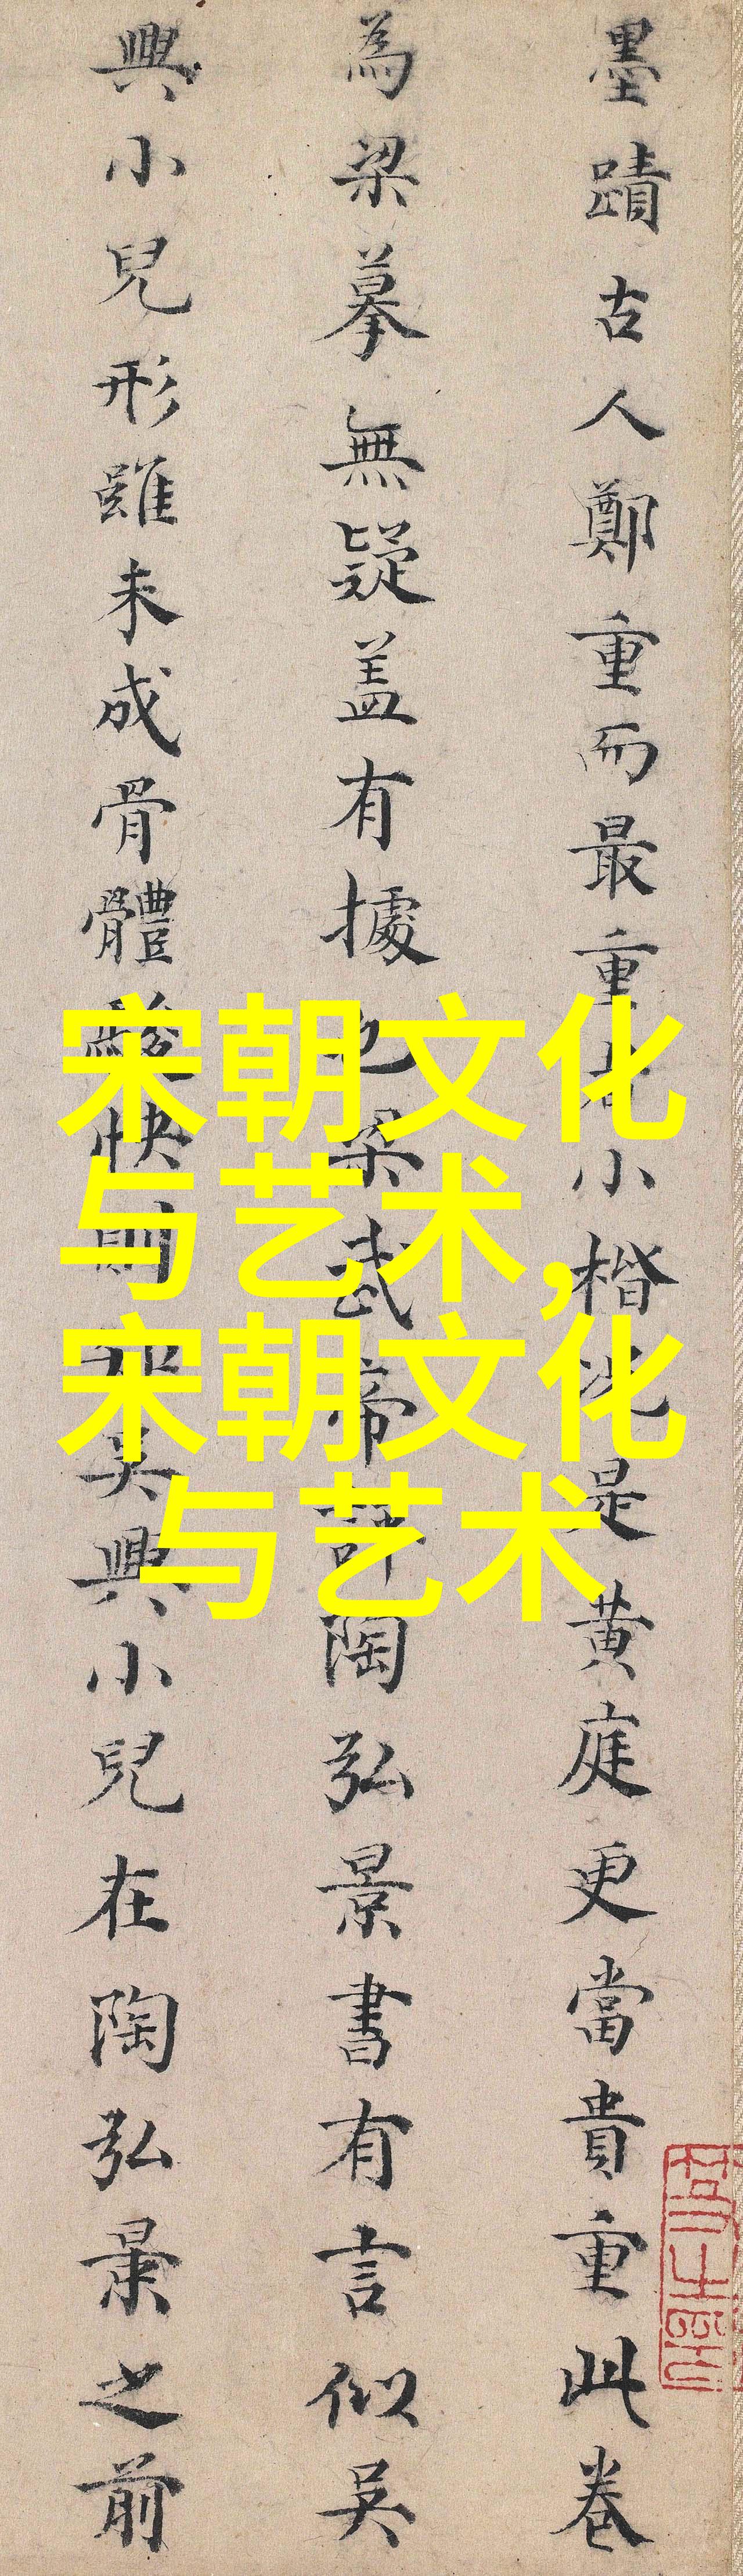 墨蹟古人鄭重而最重者小楷況是黄庭更當貴重此卷
為梁摹無疑盖有據也梁武帝評陶弘景書有言似吴
興小兒形雖未成骨體駿快則知吴興小兒在陶弘景之前
宋朝文化
与艺术,
宋朝文化
与艺术